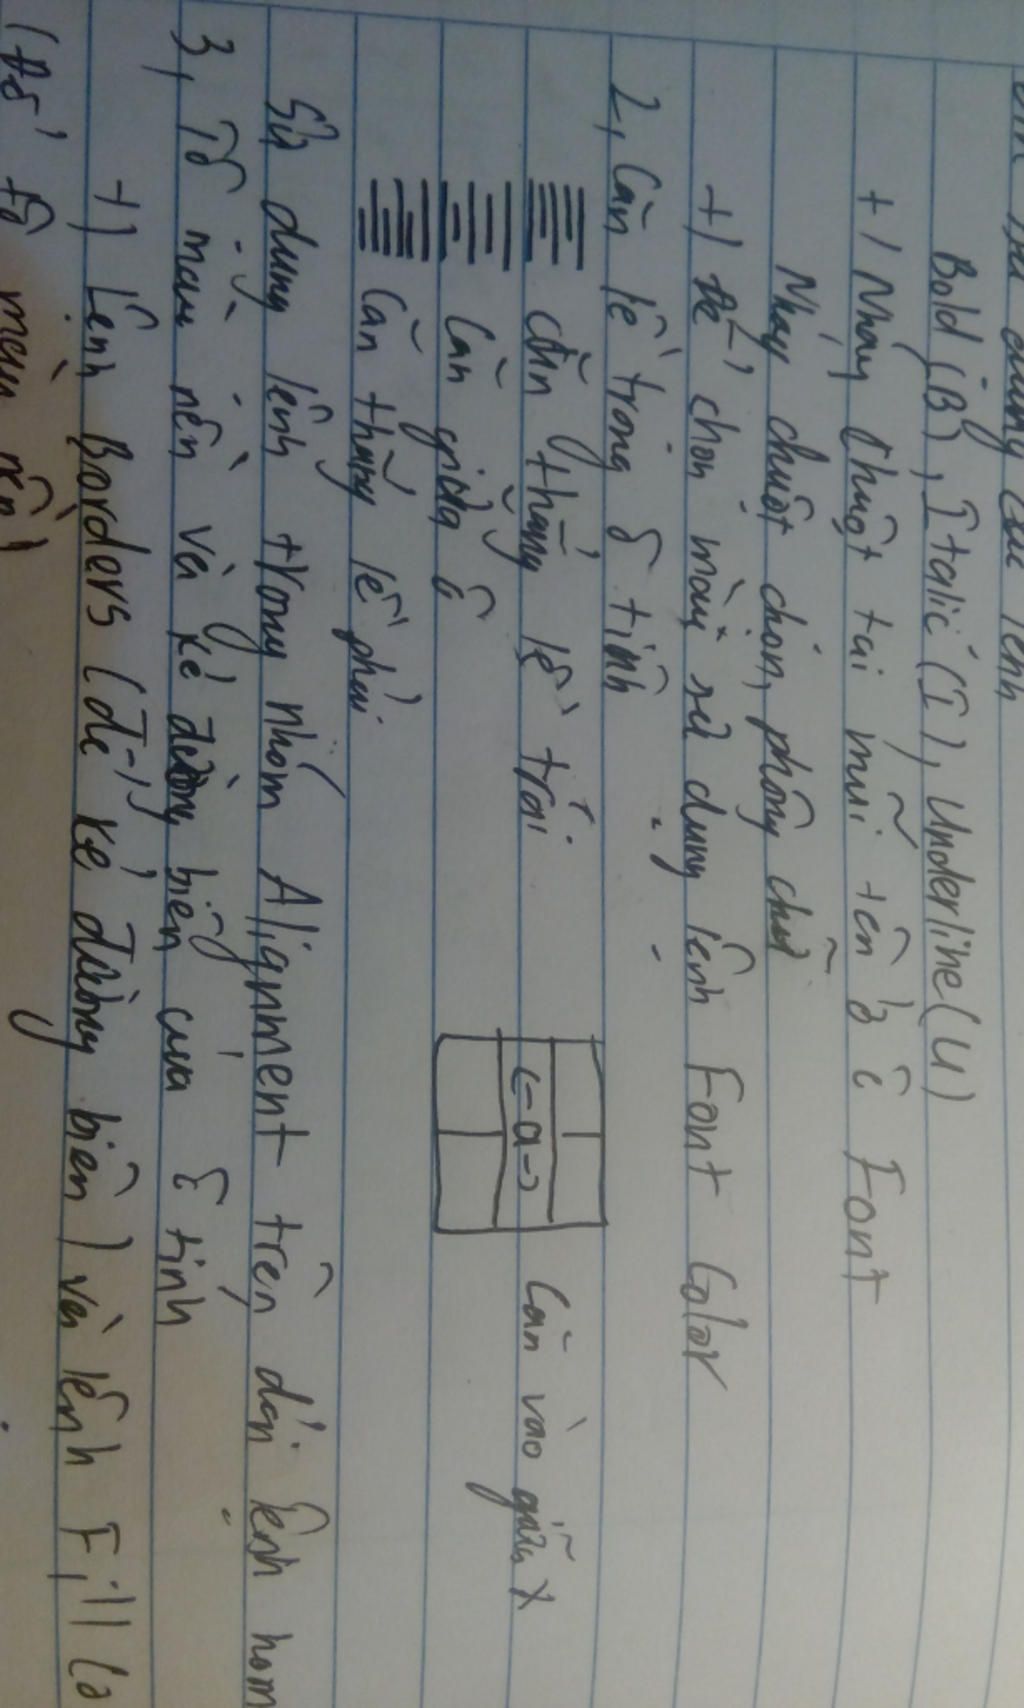 sử dụng các lệnh
Bold (B), Italic (I), Underline (U)
+) Nháy chuột tại mũi tên ở ô Font
Nháy chuột chọn, phông chữ
+) Để chọn màu sử dụng lệnh Font Color
2, Căn lề trong ô tính
căn thẳng lề trái
Căn giữa ô
Căn thẳng lề phải
(-a-)
Căn vào giữa
Sử dụng lệnh trong nhóm Alignment trên dải lệnh hom
3, Tô màu nền và kẻ đường biên của ô tính
+) Lệnh Borders (để kẻ đường biên) và lệnh Fill Co
(Để tô màu nền)